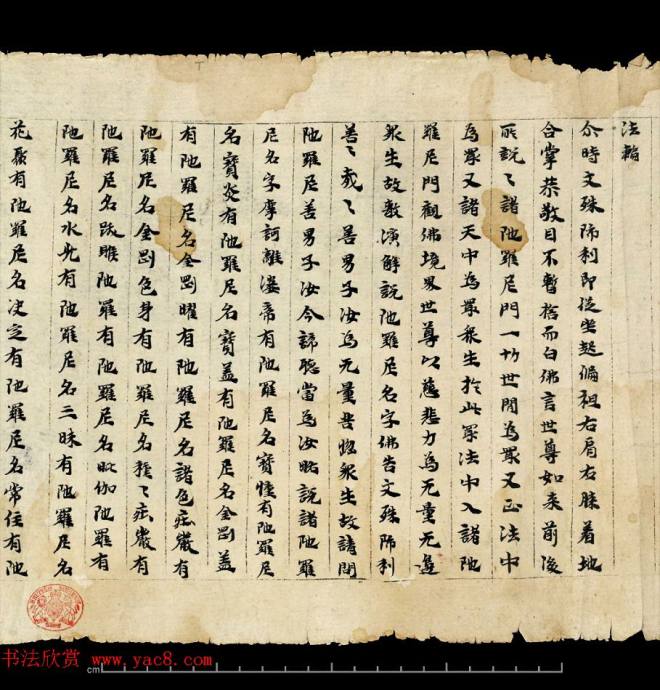 法輪
尒時文殊師利即從坐起偏袒右肩右膝着地
合掌恭敬目不暫捨而白佛言世尊如來前後
所說〻諸陁羅尼門一切世間為眾又正法中
為眾又諸天中為眾眾生於此眾法中入諸陁
羅尼門觀佛境界世尊以慈悲力為无量无邊
眾生故敷演解說陁羅尼名字佛告文殊師利
善〻哉〻善男子汝為无量苦惱眾生故請問
陁羅尼善男子汝今諦聽當為汝略說諸陁羅
尼名字摩訶離婆帝有陁羅尼名寶幢有陁羅尼
名寶炎有陁羅尼名寶盖有陁羅尼名金罡盖
有陁羅尼名金罡曜有陁羅尼名諸色莊嚴有
陁羅尼名金罡色身有陁羅尼名種〻莊嚴有
陁羅尼名跋睢陁羅有陁羅尼名毗伽陁羅有
陁羅尼名水光有陁羅尼名三昧有陁羅尼名
花聚有陁羅尼名决定有陁羅尼名常住有陁
书法欣赏 www.yac8.com
cm